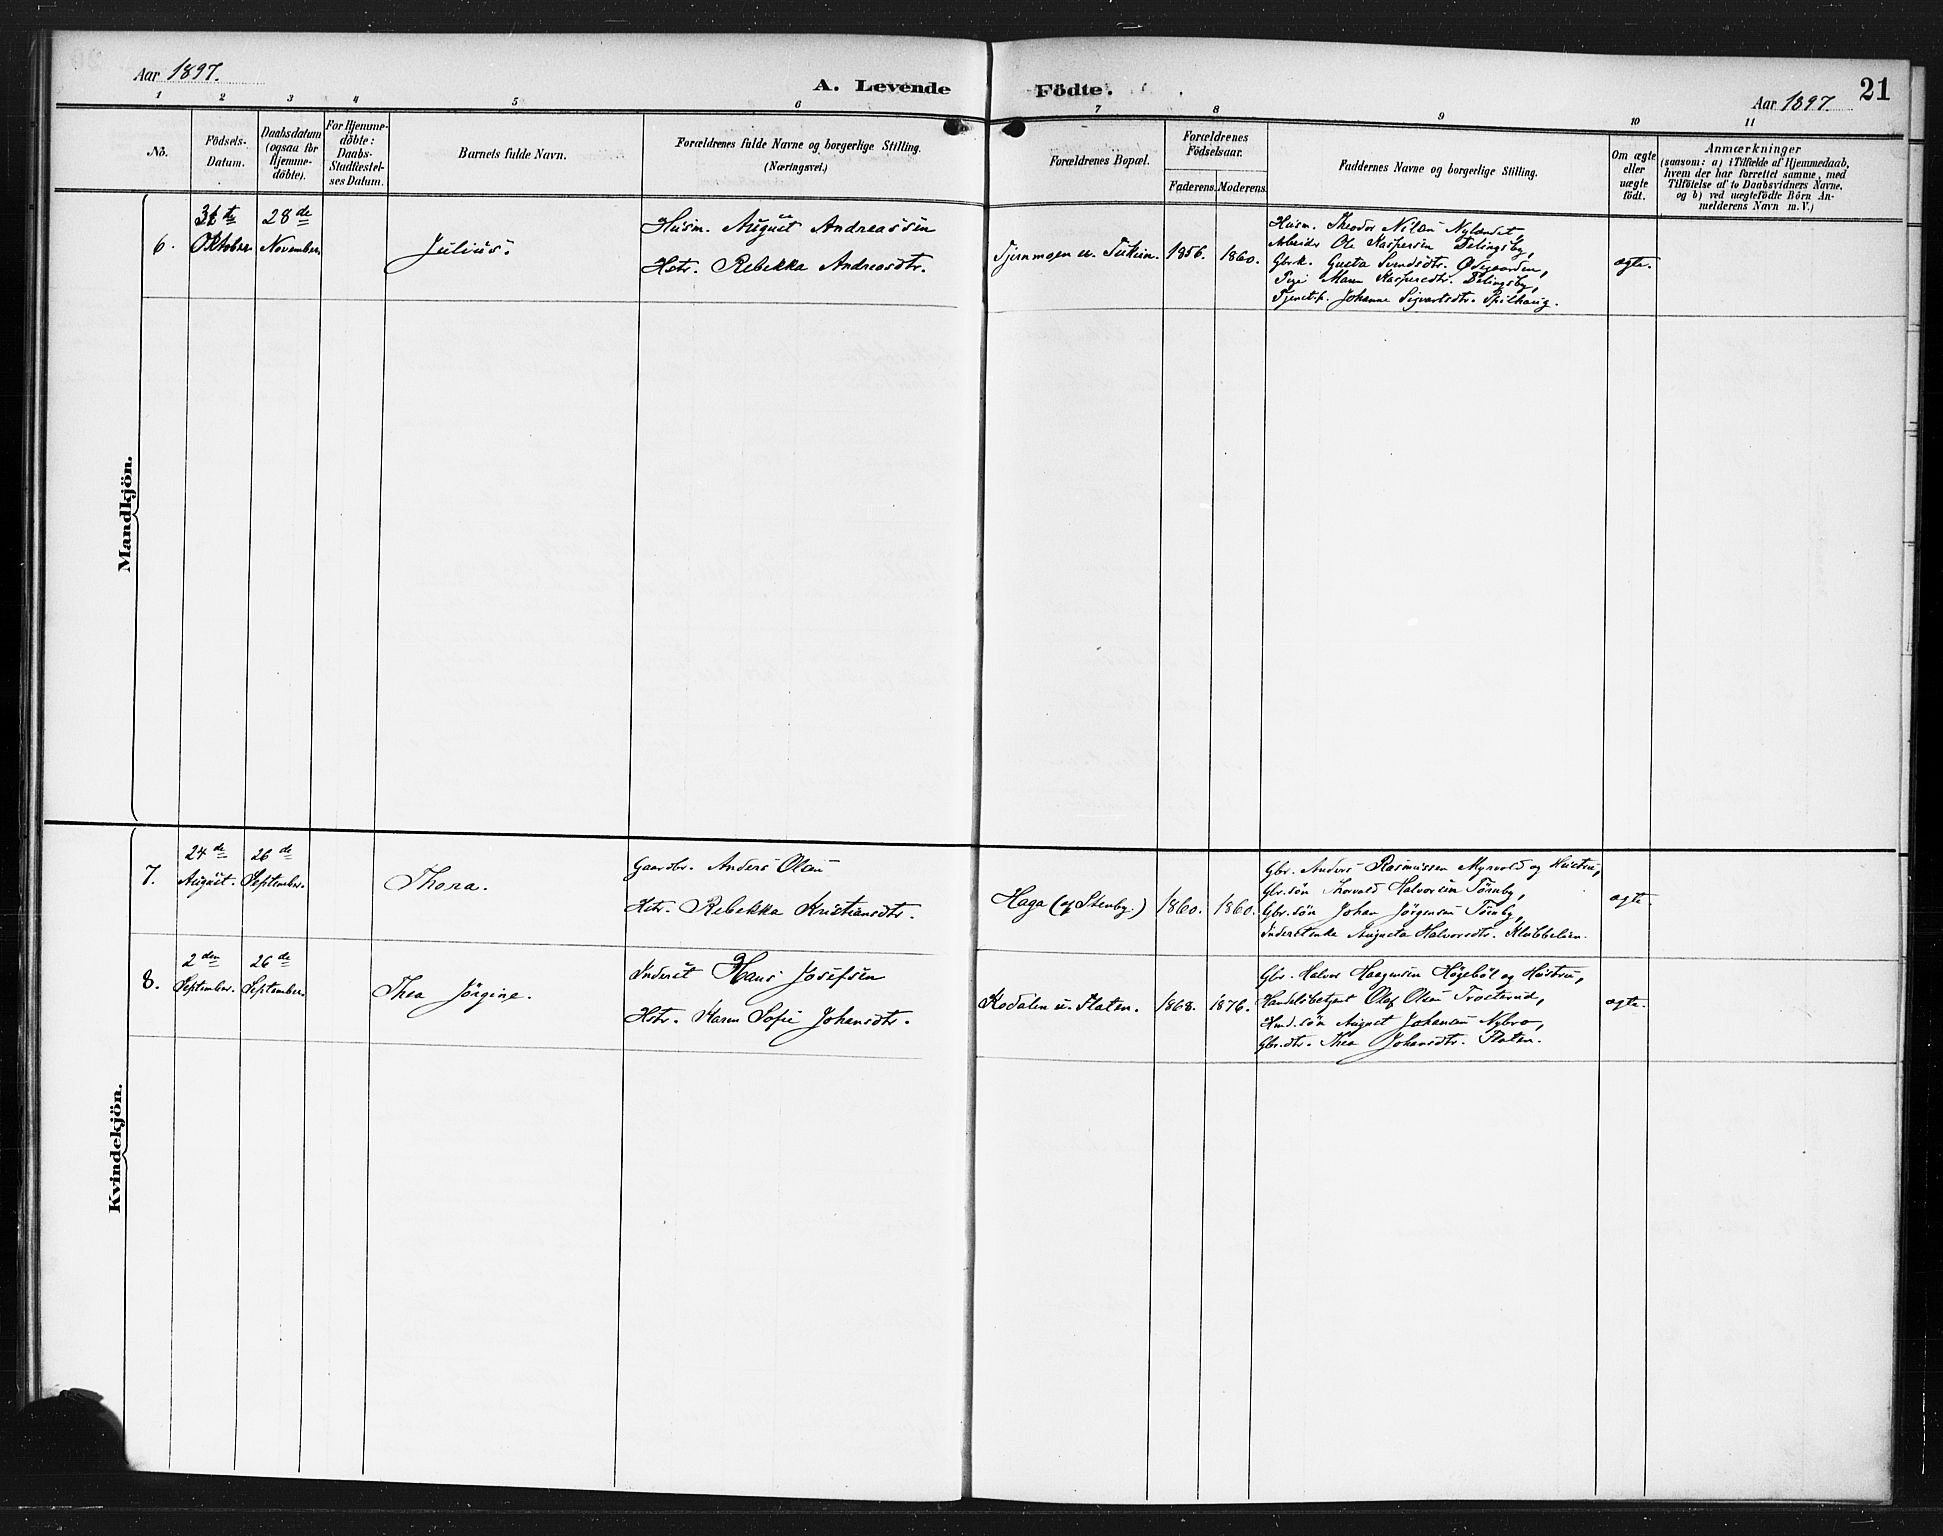 Aar 1897.
A. Levende Födte.
Aar 1897.
21
1 2 3 4 5 6 7 8 9 10 11
No.
Födsels-
Datum.
Daabsdatum
(ogsaa for
Hjemme-
döbte).
For Hjemme-
döbte:
Daabs-
Stadfæstel-
ses Datum.
Barnets fulde Navn.
Forældrenes fulde Navne og borgerlige Stilling.
(Næringsvei.)
Forældrenes Bopæl.
Forældrenes
Födselsaar.
Faderens. Moderens.
Faddernes Navne og borgerlige Stilling.
Om ægte
eller
uægte
födt.
Anmærkninger
(saasom: a) i Tilfælde af Hjemmedaab,
hvem der har forrettet samme, med
Tilföielse af to Daabsvidners Navne,
og b) ved uægtefödte Börn An-
melderens Navn m. V.)
Mandkjön.
6.
Oktober
28de
November
Julius.
Husm. August Andreassen
Hstr. Rebekka Andreasdtr.
Tjernmoen u.
1856.
1860.
Husm. Theodor Nilsen Nylændet
Arbeider Ole Kaspersen Delingsby,
Gbrk. Gusta Svendsdtr. Ødegaarden,
Pige Maren Kaspersdtr. Delingsby,
Tjenstp. Johanne Sigvartsdtr. Spilhaug.
ægte.
Kvindekjön.
7.
24de
August.
26de
September.
Thora.
Gaardbr. Anders Olsen
Hstr. Rebekka Kristiansdtr.
Haga (af Stenby.)
1860.
1860.
Gbr. Anders Rasmussen Myrvold og Hustru,
Gbr.søn Thorvald Halvorsen Tørnby,
Gbr.søn Johan Jørgensen Tørnby,
Inderstenke Augusta Halvorsdtr. Klubbelien.
ægte.
8.
2den
September.
26de
September.
Thea Jørgine.
Inderst Hans Josefsen
Hstr. Karen Sofie Johansdtr.
Kodalen u. Flaten.
1868.
1876.
Gbr. Halvor Haagensen Høgebøl og Hustru,
Handelsbetjent Olaf Olsen Trosterud,
Husm.søn August Johansen Nybro,
Gbr.dtr. Thea Johansdtr. Flaten.
ægte.